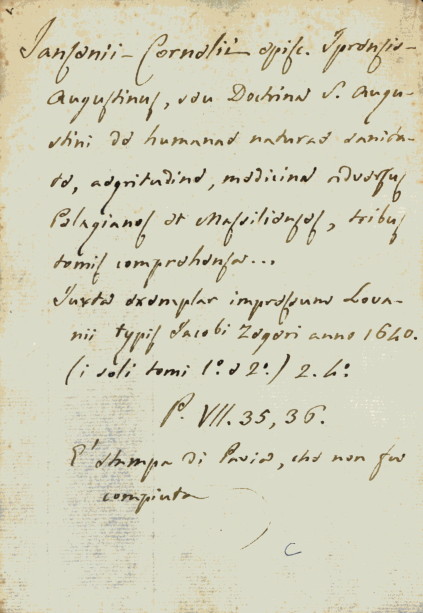 Jansenii - Cornelii episc. Iprensis -
Augustinus, seu Doctrina S. Augu-
stini de humanae naturae sanita-
te, aegritudine, medicina adversus
Pelagianos et Massilienses, tribus
tomis comprehensa...
Juxta exemplar impressum Lova-
nii typis Jacobi Zegeri anno 1640.
(i soli tomi 1.º e 2.º) 2. 4.º
P. VII. 35, 36.
E' stampa di Pavia, che non fu
compiuta
C